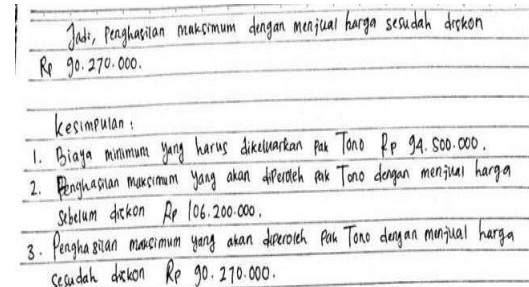 Jadi, Penghasilan maksimum dengan menjual harga sesudah diskon
Rp 90.270.000.
Kesimpulan :
1. Biaya minimum yang harus dikeluarkan pak Tono Rp 94.500.000.
2. Penghasilan maksimum yang akan diperoleh pak Tono dengan menjual harga
sebelum diskon Rp 106.200.000.
3. Penghasilan maksimum yang akan diperoleh pak Tono dengan menjual harga
sesudah diskon Rp 90.270.000.